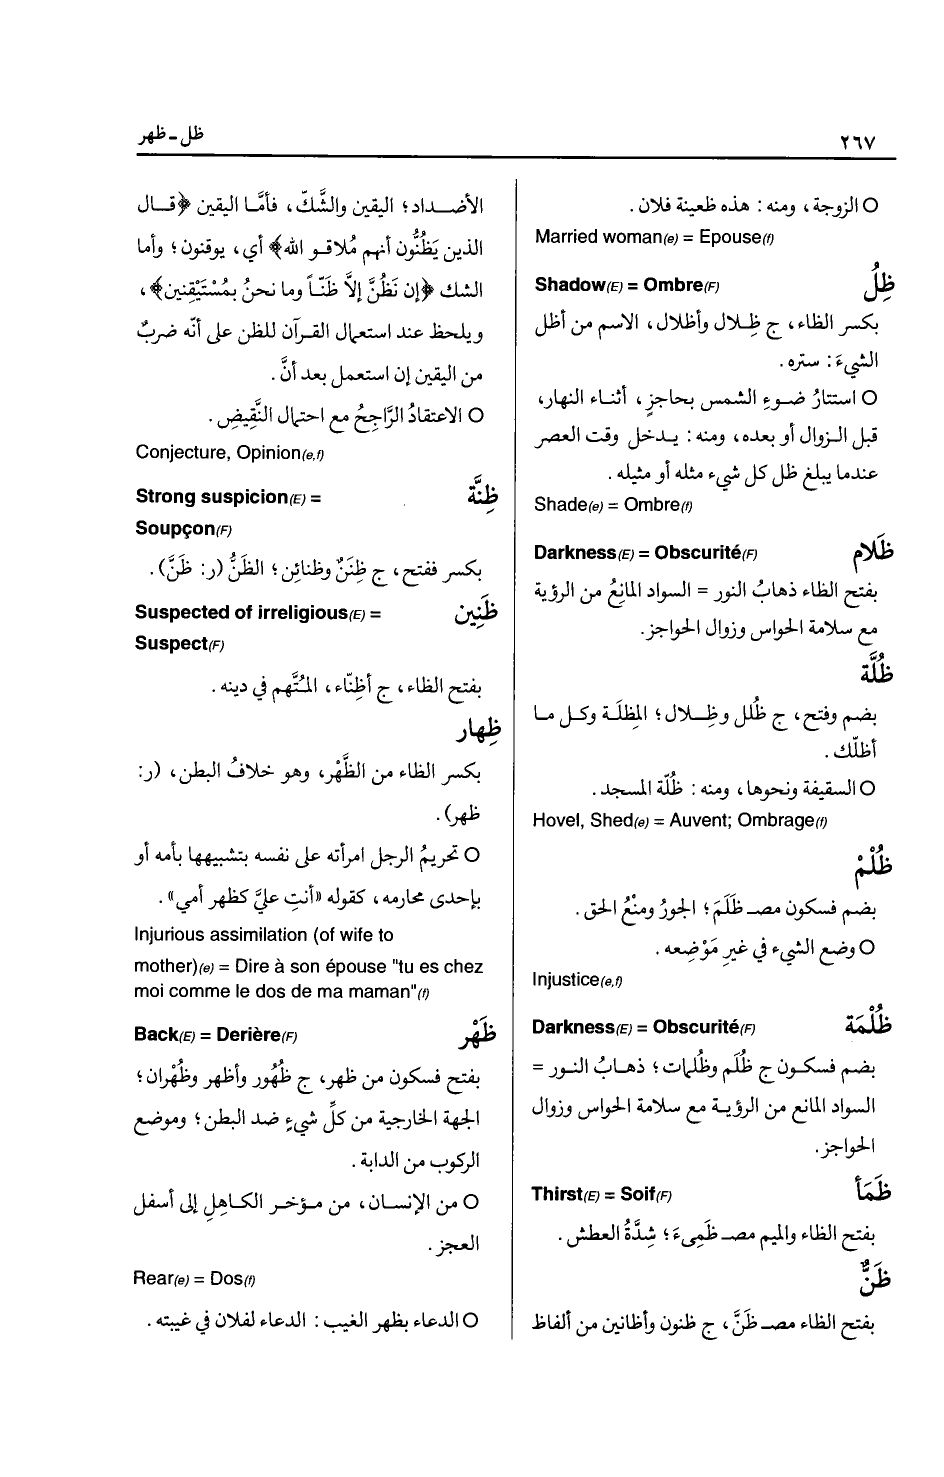 ٢٦٧
ظل ـ ظهر
○ الزوجة، ومنه: هذه ظعينة فلان.
Married woman(e) = Epouse(f)
ظِلُ Shadow(E) = Ombre(F)
بكسر الظاء، ج ظِلال وأظلال، الاسم من أظل
الشيءَ: ستره.
○ استتارُ ضوءِ الشمس بحاجزٍ، أثناء النهار،
قبل الزوال أو بعده، ومنه: يدخل وقت العصر
عندما يبلغ ظل كل شيء مثله أو مثيله.
Shade(e) = Ombre(f)
ظَلام Darkness(E) = Obscurité(F)
بفتح الظاء ذهابُ النور = السواد المانِعُ من الرؤية
مع سلامة الحواس وزوال الحواجز.
ظُلَّة
بضم وفتح، ج ظُلل وظِلال؛ المِظلَة وكل ما
أظلّك.
○ السقيفة ونحوها، ومنه: ظُلّة المسجد.
Hovel, Shed(e) = Auvent; Ombrage(f)
ظُلْمْ
بضم فسكون مصـ ظَلَمَ؛ الجورُ ومنْعُ الحق.
○ وضع الشيء في غيرِ مَوْضِعه.
Injustice(e,f)
ظُلْمَة Darkness(E) = Obscurité(F)
بضم فسكون ج ظُلَم وظُلمات؛ ذهابُ النور =
السواد المانع من الرؤية مع سلامة الحواس وزوال
الحواجز.
ظَمَأ Thirst(E) = Soif(F)
بفتح الظاء والميم مصـ ظَمِىءَ؛ شِدَّةُ العطش.
ظَنٌّ
بفتح الظاء مصـ ظَنَّ، ج ظنون وأظانين من ألفاظ
الأضداد؛ اليقين والشَّكّ، فأمَّا اليقين ﴿قال
الذين يَظُنُّون أنهم مُلاقو الله﴾ أي، يوقنون؛ وأما
الشك ﴿إن نَظُنَّ إلاَّ ظَنّاً وما نحنُ بمُسْتَيْقِنين﴾،
ويلحظ عند استعمال القرآن للظن على أنّه ضربٌ
من اليقين إن استعمل بعد أنَّ.
○ الاعتقادُ الرَّاجِحُ مع احتمال النَّقِيض.
Conjecture, Opinion(e,f)
ظِنَّة Strong suspicion(E) =
Soupçon(F)
بكسر ففتح، ج ظِنَنٌ وظنائِن؛ الظَنُّ (ر: ظَنَّ).
ظَنِين Suspected of irreligious(E) =
Suspect(F)
بفتح الظاء، ج أظِنّاء، المُتَّهم في دينه.
ظِهار
بكسر الظاء من الظَّهْر، وهو خلافُ البطن، (ر:
ظهر).
○ تحريمُ الرجل امرأته على نفسه بتشبيهها بأمه أو
بإحدى محارمه، كقوله «أنتِ عليَّ كظهر أمي».
Injurious assimilation (of wife to
mother)(e) = Dire à son épouse "tu es chez
moi comme le dos de ma maman"(f)
ظَهْر Back(E) = Derière(F)
بفتح فسكون من ظهر، ج ظُهُور وأظهر وظُهْران؛
الجهة الخارجية من كلِّ شيءٍ ضد البطن؛ وموضع
الركوب من الدابة.
○ من الإنسان، من مؤخر الكاهِلِ إلى أسفل
العجز.
Rear(e) = Dos(f)
○ الدعاء بظهر الغيب: الدعاء لفلان في غيبته.